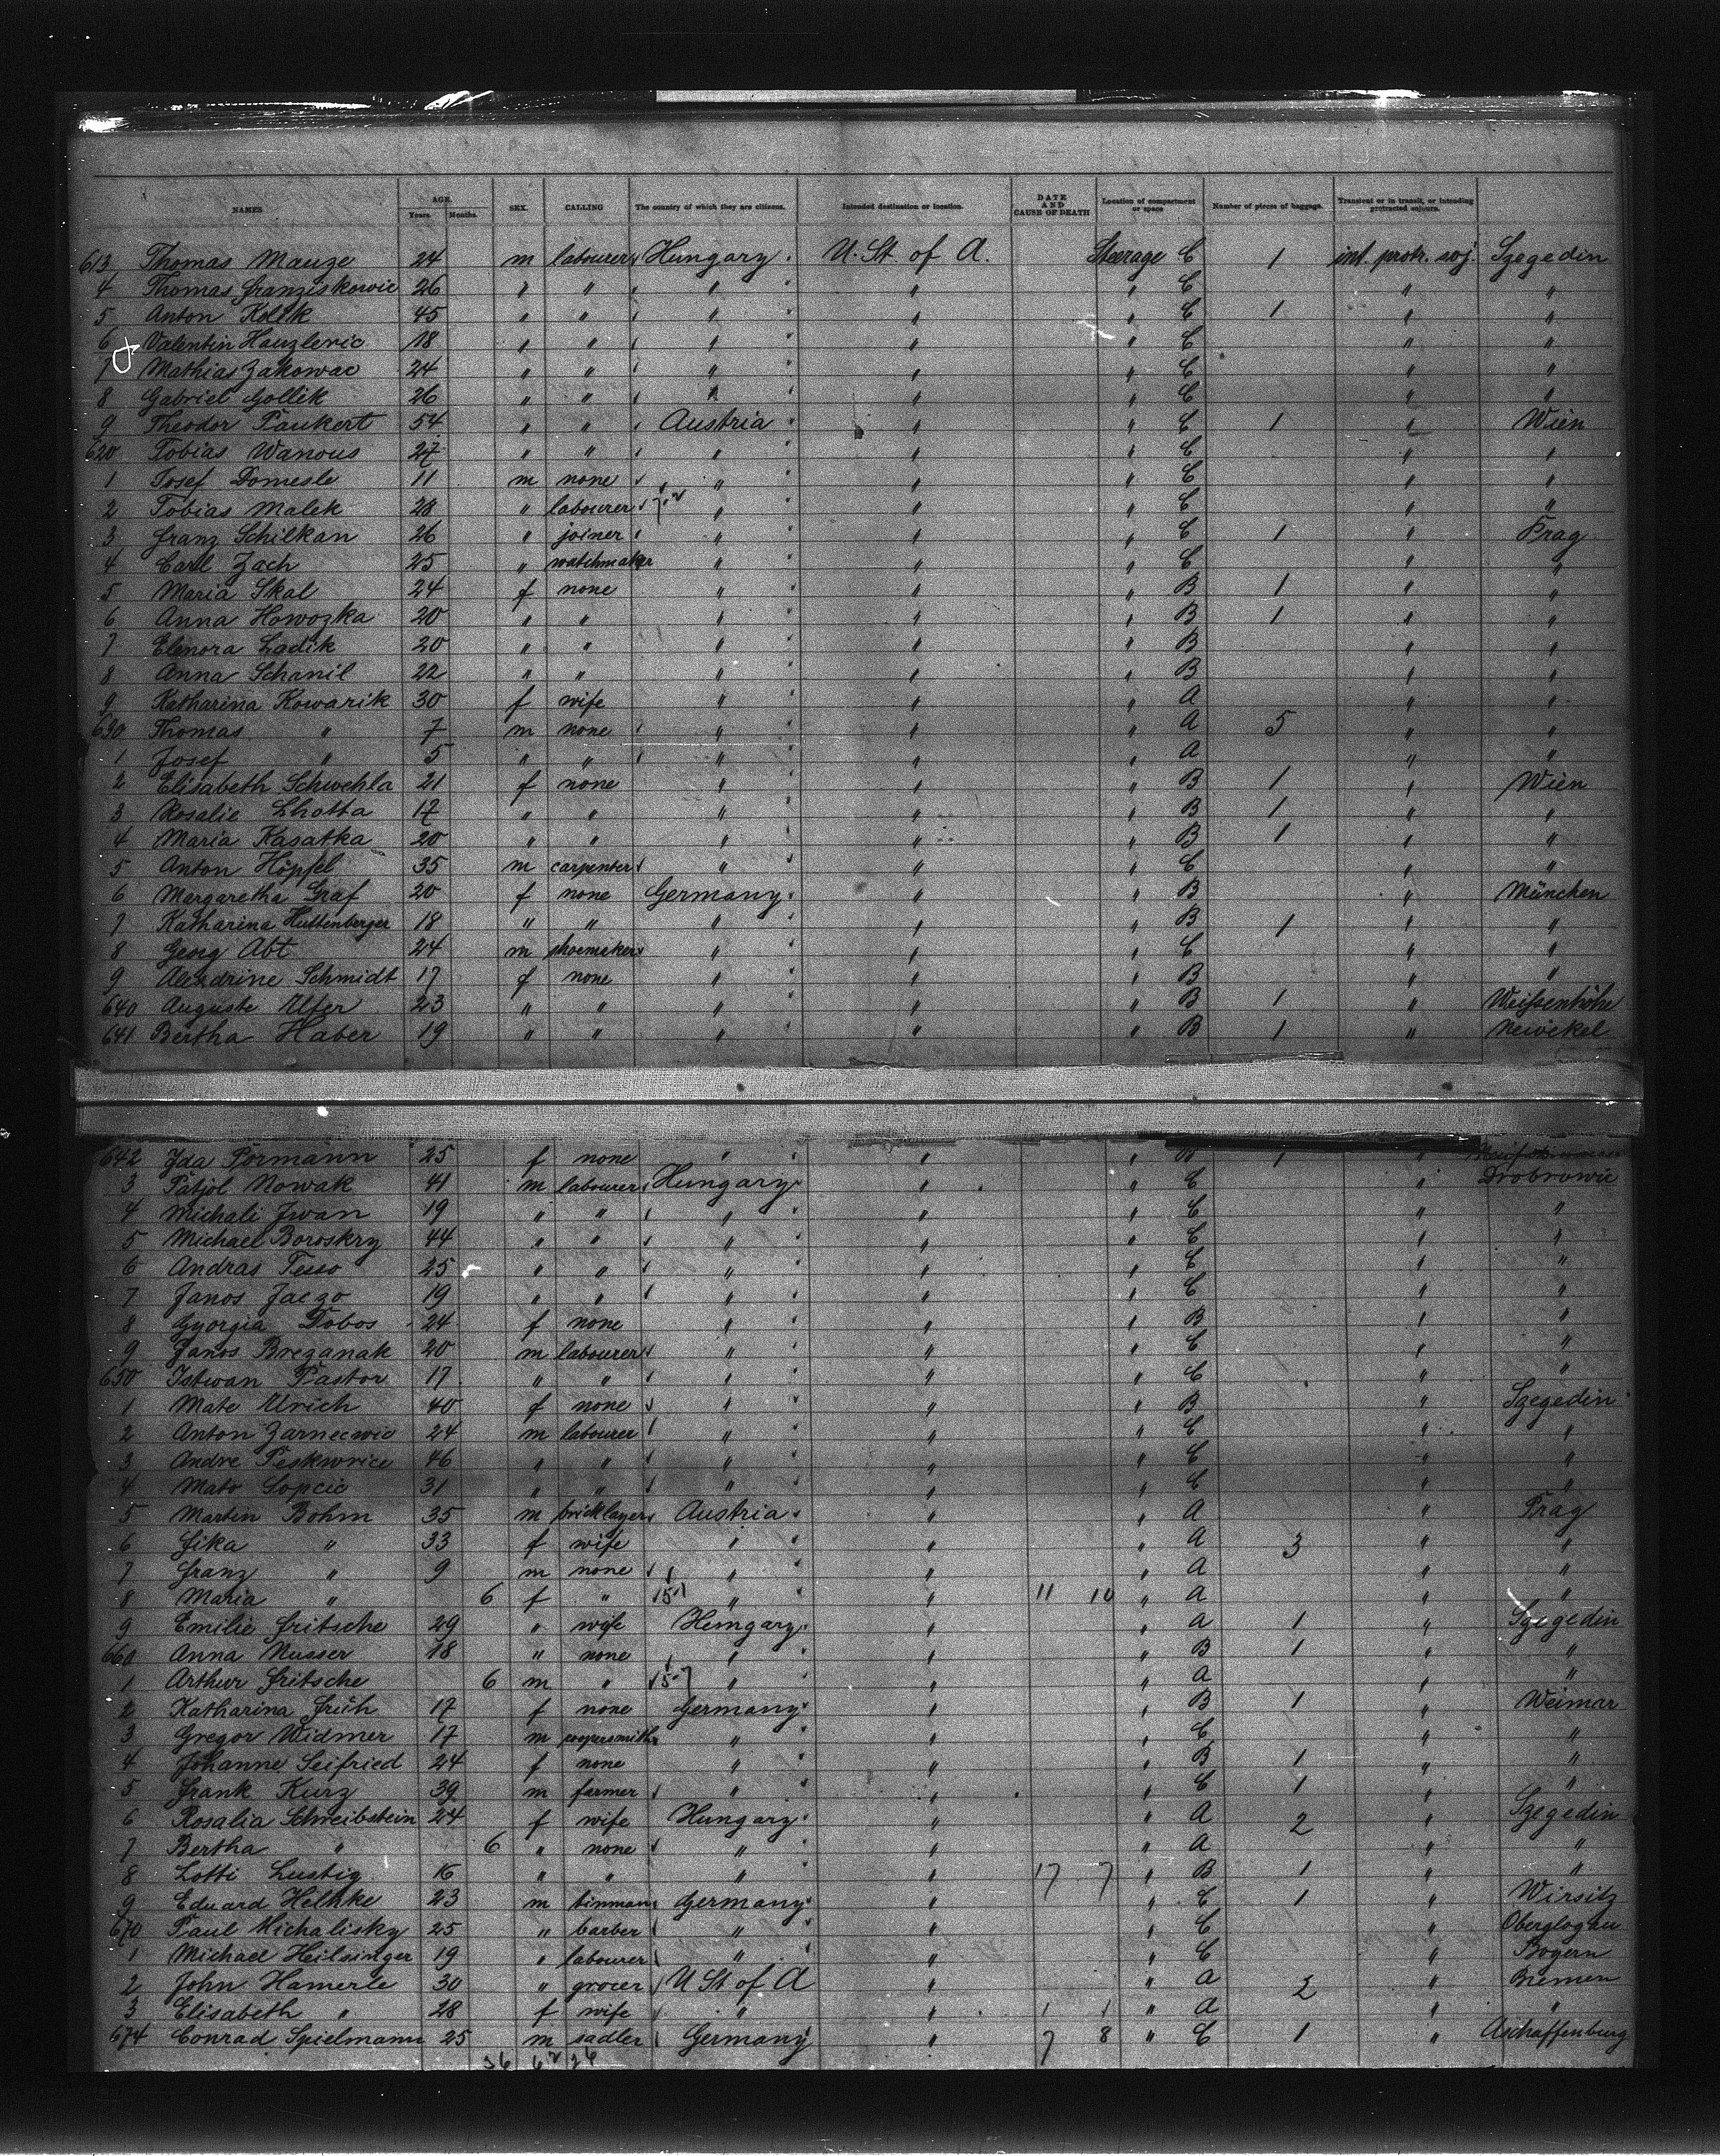 NAMES AGE. Years. Months. SEX. CALLING The country of which they are citizens. Intended destination or location. DATE AND CAUSE OF DEATH Location of compartment or space Number of pieces of baggage. Transient or in transit, or intending protracted sojourn.
613 Thomas Mauze 24 m labourer Hungary U. St. of A. Steerage C 1 int. protr. soj. Szegedin
4 Thomas Franziskowic 26 " " " " " C " "
5 Anton Kolik 45 " " " " " C 1 " "
6 Valentin Hauzleric 18 " " " " " C " "
7 Mathias Zakowac 24 " " " " " C " "
8 Gabriel Gollik 26 " " " " " C " "
9 Theodor Paukert 54 " " Austria " " C 1 " Wien
620 Tobias Wanous 27 " " " " " C " "
1 Josef Domesle 11 m none " " " C " "
2 Tobias Malek 28 " labourer " " " C " "
3 Franz Schilkan 26 " joiner " " " C 1 " Prag
4 Carl Zach 25 " watchmaker " " " C " "
5 Maria Skal 24 f none " " " B 1 " "
6 Anna Howozka 20 " " " " " B 1 " "
7 Elenora Ladik 20 " " " " " B " "
8 Anna Schanil 22 " " " " " B " "
9 Katharina Kowarik 30 f wife " " " A " "
630 Thomas " 7 m none " " " A 5 " "
1 Josef " 5 " " " " " A " "
2 Elisabeth Schwehla 21 f none " " " B 1 " Wien
3 Rosalie Lhotta 17 " " " " " B 1 " "
4 Maria Kasatka 20 " " " " " B 1 " "
5 Anton Höpfel 35 m carpenter " " " C " "
6 Margaretha Graf 20 f none Germany " " B " München
7 Katharina Huttenberger 18 " " " " " B 1 " "
8 Georg Abt 24 m shoemaker " " " C " "
9 Alexdrine Schmidt 17 f none " " " B " "
640 Auguste Utter 23 " " " " " B 1 " Weissenhöhe
641 Bertha Haber 19 " " " " " B 1 " Neuekel
642 Ida Pörmann 25 f none " " " B 1 "
3 Patjol Nowak 41 m labourer Hungary " " C " Drobrowic
4 Michali Iwan 19 " " " " " C " "
5 Michael Boroskry 44 " " " " " C " "
6 Andras Tesso 25 " " " " " C " "
7 Janos Jaczo 19 " " " " " C " "
8 Gyorgia Dobos 24 f none " " " B " "
9 Janos Brezanak 20 m labourer " " " C " "
650 Istwan Pastor 17 " " " " " C " "
1 Mate Urich 40 f none " " " B " Szegedin
2 Anton Zarnecwic 24 m labourer " " " C " "
3 Andre Peskwrice 46 " " " " " C " "
4 Mato Sopcic 31 " " " " " C " "
5 Martin Bohm 35 m bricklayer Austria " " A " Prag
6 Jika " 33 f wife " " " A 3 " "
7 Franz " 9 m none " " " A " "
8 Maria " 6 f " " " 11 10 " A " "
9 Emilie Fritsche 29 " wife Hungary " " A 1 " Szegedin
660 Anna Musser 18 " none " " " B 1 " "
1 Arthur Fritsche 6 m " " " " A " "
2 Katharina Früh 17 f none Germany " " B 1 " Weimar
3 Gregor Widmer 17 m coopersmith " " " C " "
4 Johanne Seifried 24 f none " " " B 1 " "
5 Frank Kurz 39 m farmer " " " C 1 " "
6 Rosalia Schreibstein 24 f wife Hungary " " A 2 " Szegedin
7 Bertha " 6 " none " " " A " "
8 Lotti Lustig 16 " " " " 17 7 " B 1 " "
9 Eduard Helhke 23 m tinman Germany " " C 1 " Wirsitz
670 Paul Michalisky 25 " barber " " " C " Oberglogau
1 Michael Heilsinger 19 " labourer " " " C " Bogern
2 John Hamerle 30 " grocer U St of A " " A 2 " Bremen
3 Elisabeth " 28 f wife " " 1 1 " A " "
674 Conrad Spielmann 25 m sadler Germany " 7 8 " C 1 " Aschaffenburg